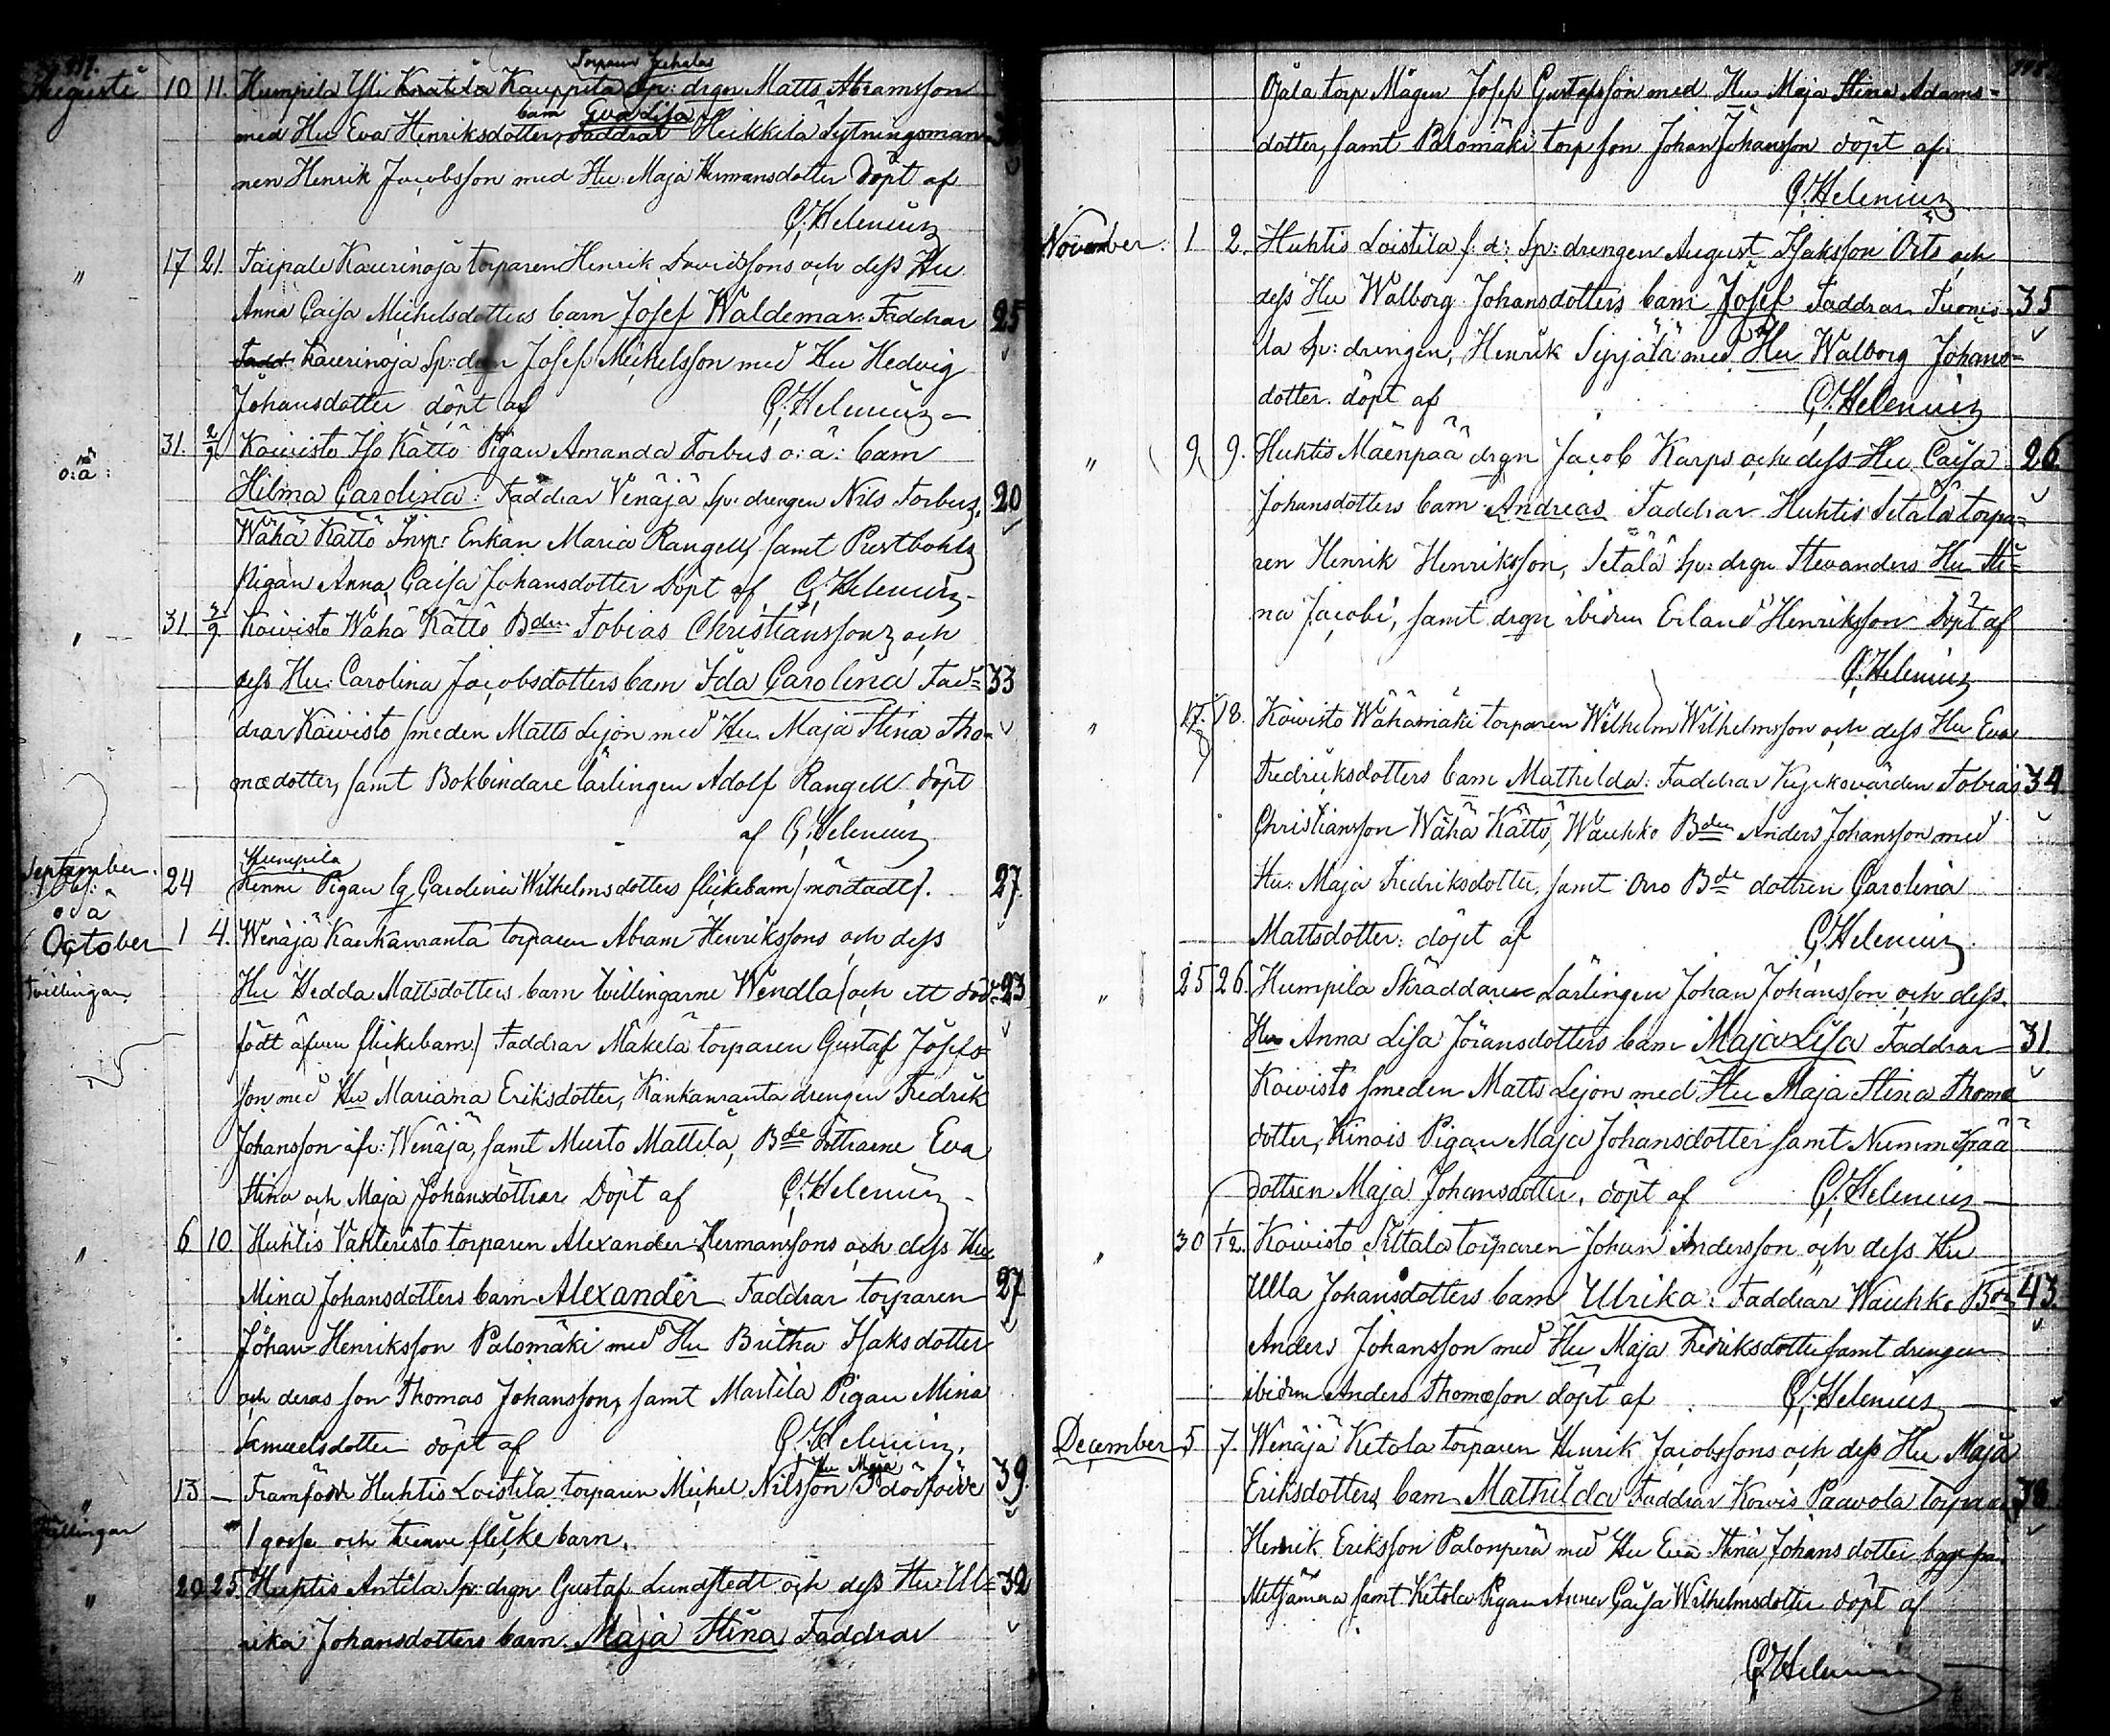 Torparn Juhalas
Augusti 10 11. Humpila Yli Knatila Kauppila Sp: drgn Matts Abramsson
barn Eva Lisa
med Hu Eva Henriksdotter, Faddrar Heikkilä Lytningsman-
nen Henrik Jacobsson med Hu: Maja Hermansdotter döpt af
G. Helenius
" 17 21. Taipale Kaurinoja torparen Henrik Davidssons och dess Hu
Anna Caisa Michelsdotters barn Josef Waldemar: Faddrar 25
Fadd: Kaurinoja Sp: drgn Josef Michelsson med Hu Hedvig
Johansdotter döpt af G. Helenius
o:ä: 31. 2/9 Koivisto Iso Kättö Pigan Amanda Forbus o: ä: barn
Hilma Carolina: Faddrar Venäjä Sp: drengen Nils Forbus, 20
Wähä Kättö Insp: Enkan Maria Rangell, samt Prestbohls
Pigan Anna Caisa Johansdotter Döpt af G. Helenius
" 31 3/9 Koivisto Wähä Kättö Bdn Tobias Christianssons och
dess Hu: Carolina Jacobsdotters barn Ida Carolina Fad= 33
drar Koivisto smeden Matts Lejon med Hu. Maja Stina Tho-
mædotter, samt Bokbindare lärlingen Adolf Rangell. döpt
af G. Helenius
Humpila
September. 24 Kenni Pigan lg Carolina Wilhelmsdotters flickebarn /mördadt/. 27.
o ä
October 1 4. Wenäjä Kankaranta torparen Abram Henrikssons och dess
tvillingar Hu Hedda Mattsdotters barn tvillingarne Wendla (och ett död- 23
födt äfven flickebarn) Faddrar Mäkelä torparen Gustaf Josefs-
son med Hu Mariana Eriksdotter, Kankaranta drengen Fredrik
Johansson ifr: Wenäjä, samt Musto Mattila, Bde döttrarne Eva
Stina och Maja Johansdöttrar Döpt af G. Helenius
" 6 10. Huhtis Vahteristo torparen Alexander Hermanssons och dess Hu
Mina Johansdotters barn Alexander Faddrar torparen 27
Johan Henriksson Palomäki med Hu Britha Isaksdotter
och deras son Thomas Johansson, samt Martila Pigan Mina
Samuelsdotter döpt af G. Helenius.
Hu Maja
" 13 — Framfödde Huhtis Loistila torparen Michel Nilsson 3 dödfödde 39.
1 gosse och tvenne flickebarn.
" 20 25. Huhtis Antila Sp: drgn Gustaf Lundstedt och dess Hu: Ul= 32
rika Johansdotters barn Maja Stina Faddrar
Ojala torp Mågen Josef Gustafsson med Hu Maja Stina Adams-
dotter, samt Palomäki torp son Johan Johansson döpt af.
G. Helenius
November. 1 2. Huhtis Loistila f. d: Sp: drengen August Isaksson Orts och
dess Hu Walborg Johansdotters barn Josef Faddrar Tuomi- 35
la Sp: drengen, Henrik Sipjälä med Hu Walborg Johans-
dotter. döpt af G. Helenius
" 9 9. Huhtis Mäenpää drgn Jacob Karps och dess Hu Caisa 26.
Johansdotters barn Andreas Faddrar Huhtis Setälä torpa=
ren Henrik Henriksson, Setälä Sp: drgn Stevanders Hu Sti=
na Jacobi, samt drgn ibidem Erland Henriksson Döpt af
G. Helenius
" 17. 18. Koivisto Wähämäki torparen Wilhelm Wilhelmsson och dess Hu Eva
Fredriksdotters barn Mathilda: Faddrar Kyrkovärden Tobias 34
Christiansson Wähä Kättö, Wauhko Bden Anders Johansson med
Hu: Maja Fredriksdotter, samt Orro Bde dottren Carolina
Mattsdotter: döpt af G. Helenius
" 25 26. Humpila Skräddare Lärlingen Johan Johansson och dess.
Hu Anna Lisa Göransdotters barn Maja Lisa Faddrar 31.
Koivisto smeden Matts Lejon med Hu Maja Stina Thomæ
dotter, Kinais Pigan Maja Johansdotter samt Nummipää
dottren Maja Johansdotter, döpt af G. Helenius
" 30 1/12. Koivisto Sittala torparen Johan Andersson och dess Hu
Ulla Johansdotters barn Ulrika: Faddrar Wauhko Bdn 43.
Anders Johansson med Hu Maja Fredriksdotter samt drengen
ibidem Anders Thomæson döpt af G. Helenius
December 5 7. Wenäjä Ketola torparen Henrik Jacobssons och dess Hu Maja
Eriksdotters barn Mathilda Faddrar Kowis Paavola torparen 38
Henrik Eriksson Palonperä med Hu Eva Stina Johansdotter
samt Ketola Pigan Anna Caisa Wilhelmsdotter döpt af
G. Helenius